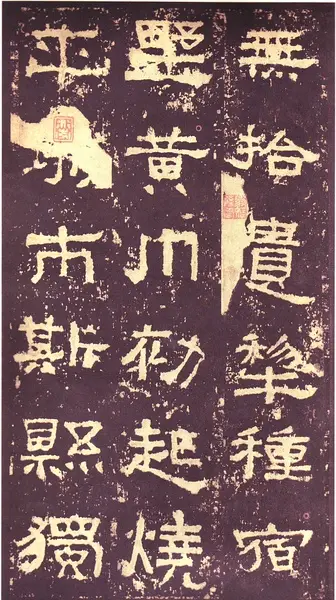 無拾遺犂種宿
野黃巾初起燒
平市斯縣獨